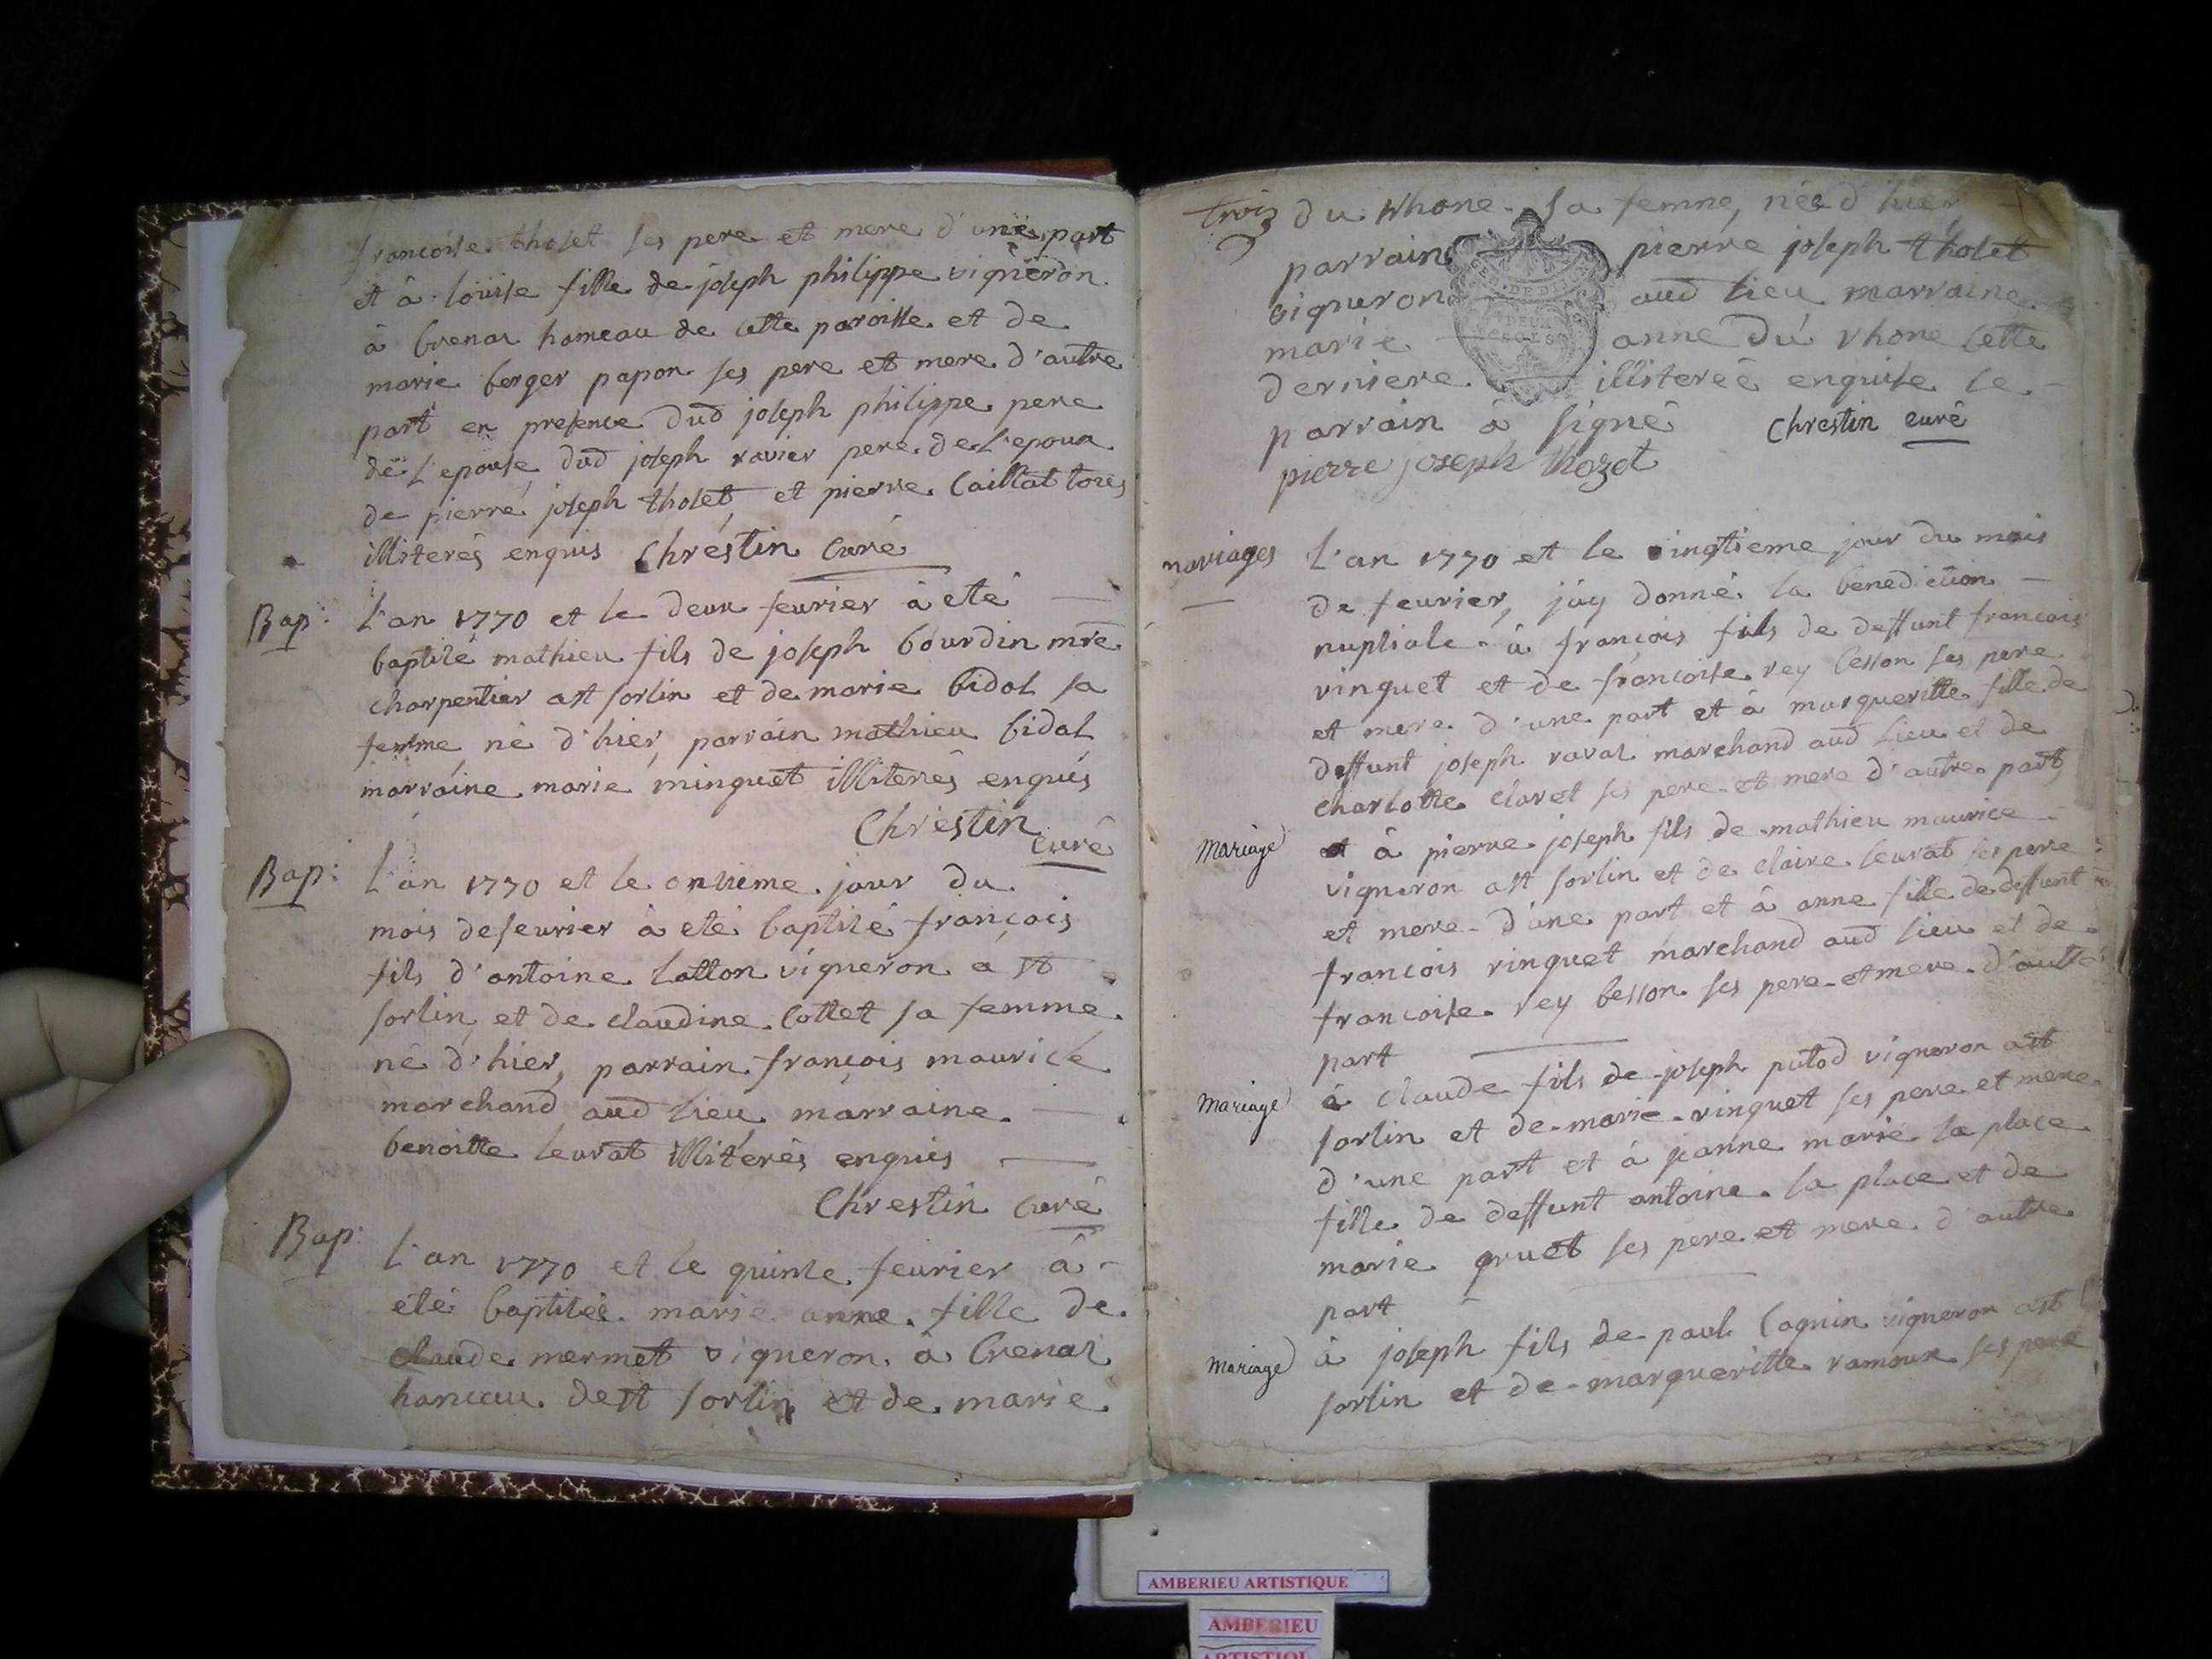 francoise thoset ses pere et mere d'une part
et à louise fille de joseph philippe vigneron
à brenaz hameau de cette paroisse et de
marie berger papon ses pere et mere d'autre
part en presence dud joseph philippe pere
de l'epouse dud joseph ravier pere de l'epoux
de pierre joseph tholet et pierre Caillat tous
illiterés enquis Chrestin Curé
Bap: L'an 1770 et le deux feurier à eté
baptisé mathieu fils de joseph bourdin mre
charpentier a st sorlin et de marie bidol sa
femme né d'hier, parrain mathieu bidal
marraine marie minguet illiterés enquis
Chrestin
Curé
Bap: L'an 1770 et le onzieme jour du
mois de feurier à eté baptisé françois
fils d'antoine latton vigneron a st
sorlin et de claudine Cottet sa femme
né d'hier, parrain françois maurice
marchand aud lieu marraine
benoitte leurat illiterés enquis
Chrestin Curé
Bap: L'an 1770 et le quinze feurier à
eté baptisée marie anne fille de
claude mermet vigneron à brenaz
hameau de st sorlin et de marie
trois du Rhone sa femme, née d'hier
parrain pierre joseph tholet
vigneron aud lieu marraine
marie anne du rhone cette
derniere illiterée enquise le
parrain à signé Chrestin curé
pierre joseph thozet
DEUX
mariages L'an 1770 et le vingtieme jour du mois
de feurier, j'ay donné la benediction
nuptiale à françois fils de deffunt francois
vinguet et de francoise rey besson ses pere
et mere d'une part et à margueritte fille de
deffunt joseph ravaz marchand aud lieu et de
charlotte claret ses pere et mere d'autre part,
Mariage et à pierre joseph fils de mathieu maurice
vigneron a st sorlin et de claire leurat ses pere
et mere d'une part et à anne fille de deffunt
francois vinguet marchand aud lieu et de
francoise rey besson ses pere et mere d'autre
part
Mariage à claude fils de joseph putod vigneron a st
sorlin et de marie vinguet ses pere et mere
d'une part et à jeanne marie la place
fille de deffunt antoine la place et de
marie gruet ses pere et mere d'autre
part
Mariage à joseph fils de paul Cognin vigneron a st
sorlin et de margueritte ramoux ses pere
AMBERIEU ARTISTIQUE
AMBERIEU
ARTISTIQUE